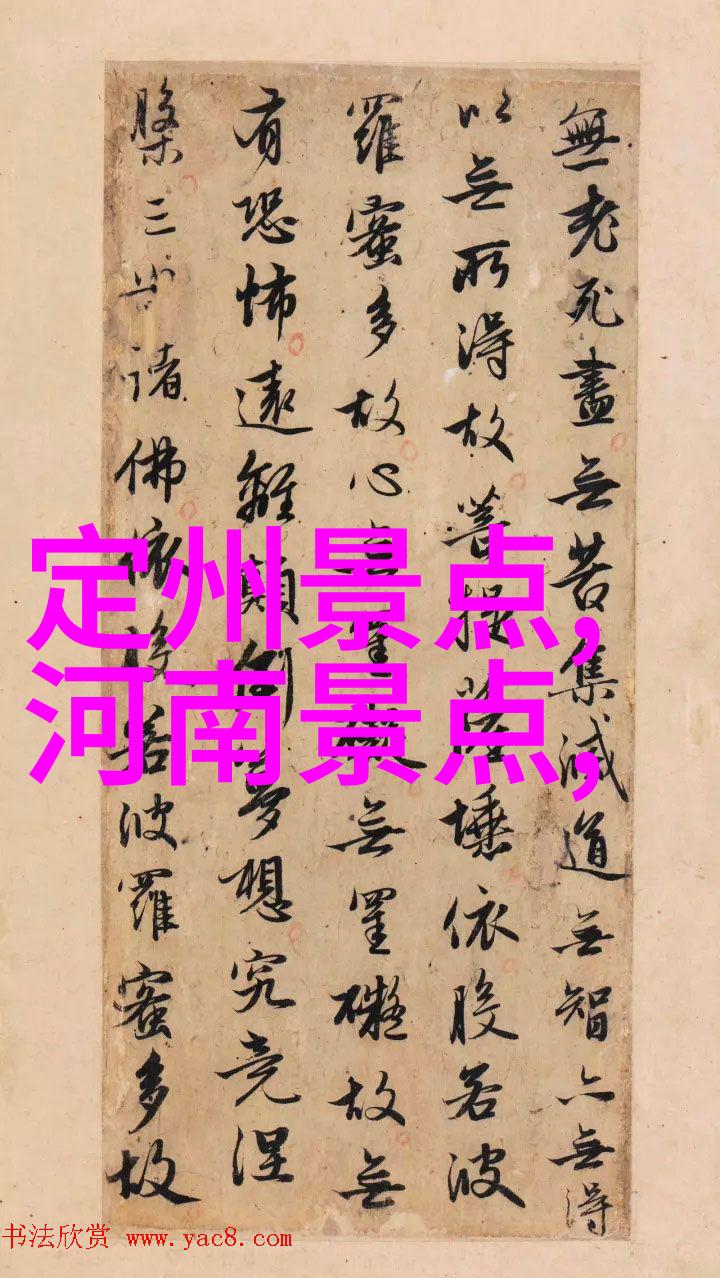 無老死盡無苦集滅道無智亦無得
以無所得故菩提薩埵依般若波
羅蜜多故心無罣礙無罣礙故無
有恐怖遠離顛倒夢想究竟涅
槃三世諸佛依般若波羅蜜多故
定州景点,
河南景点,
书法欣赏 www.yac8.com